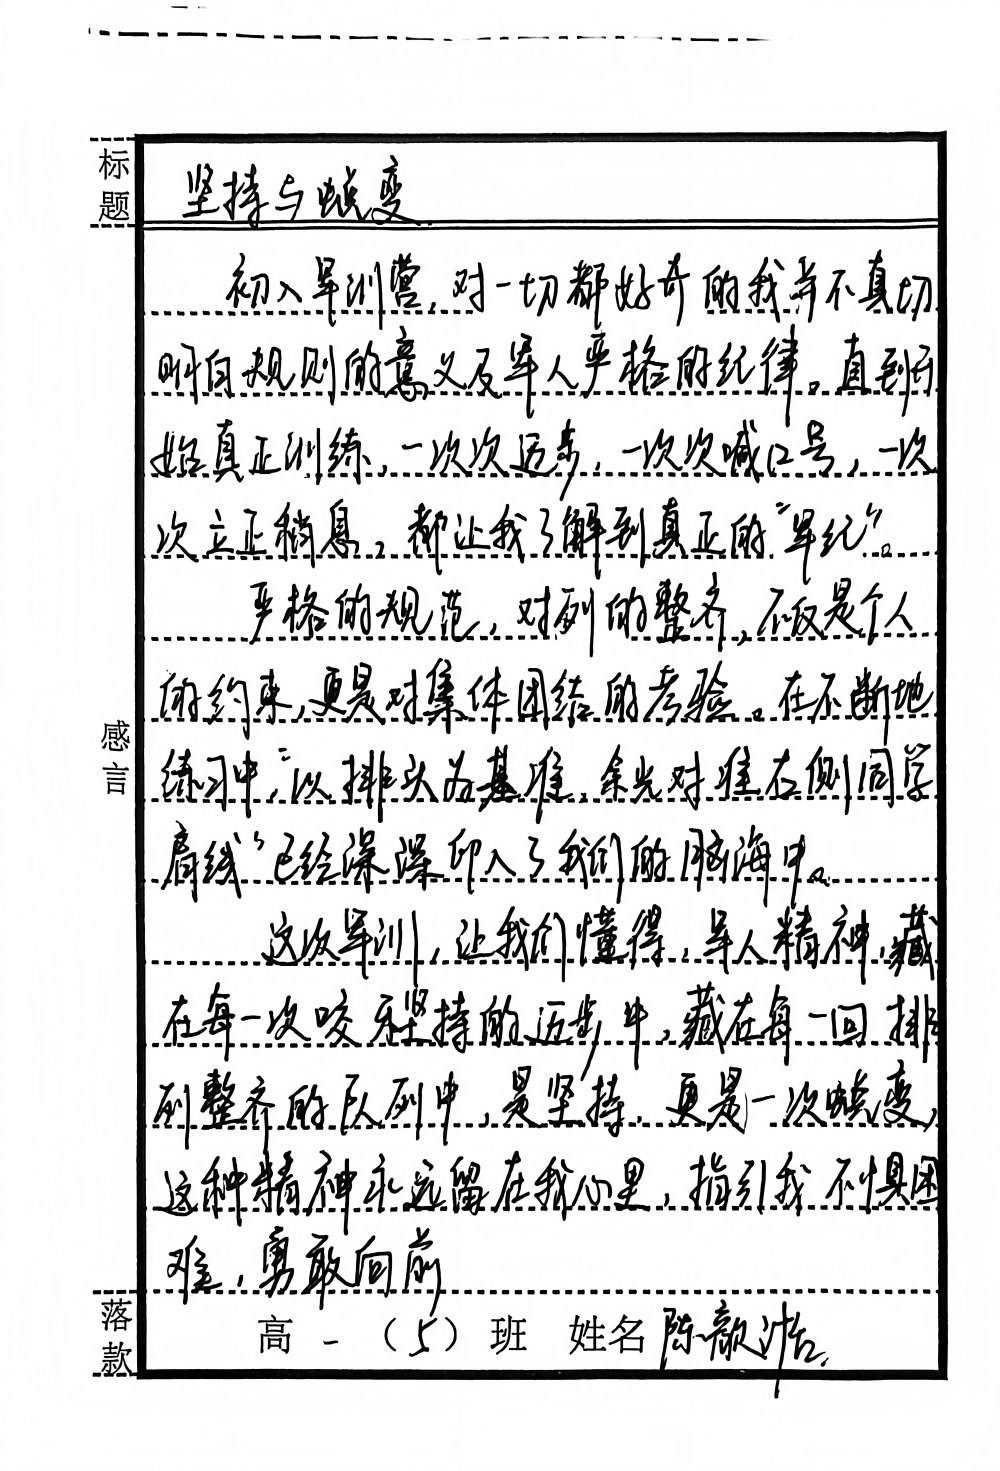 标题
坚持与蜕变
初入军训营，对一切都好奇的我并不真切
明白规则的意义及军人严格的纪律。直到开
始真正训练，一次次迈步，一次次喊口号，一次
次立正稍息，都让我了解到真正的“军纪”。
严格的规范，对列的整齐，不仅是个人
的约束，更是对集体团结的考验。在不断地
练习中，“以排头为基准，余光对准右侧同学
肩线”已经深深印入了我们的脑海中。
感言
这次军训，让我们懂得，军人精神，藏
在每一次咬牙坚持的迈步中，藏在每一回排
列整齐的队列中，是坚持，更是一次蜕变，
这种精神永远留在我心里，指引我不惧困
难，勇敢向前
落款
高一（5）班 姓名 陈歆浩